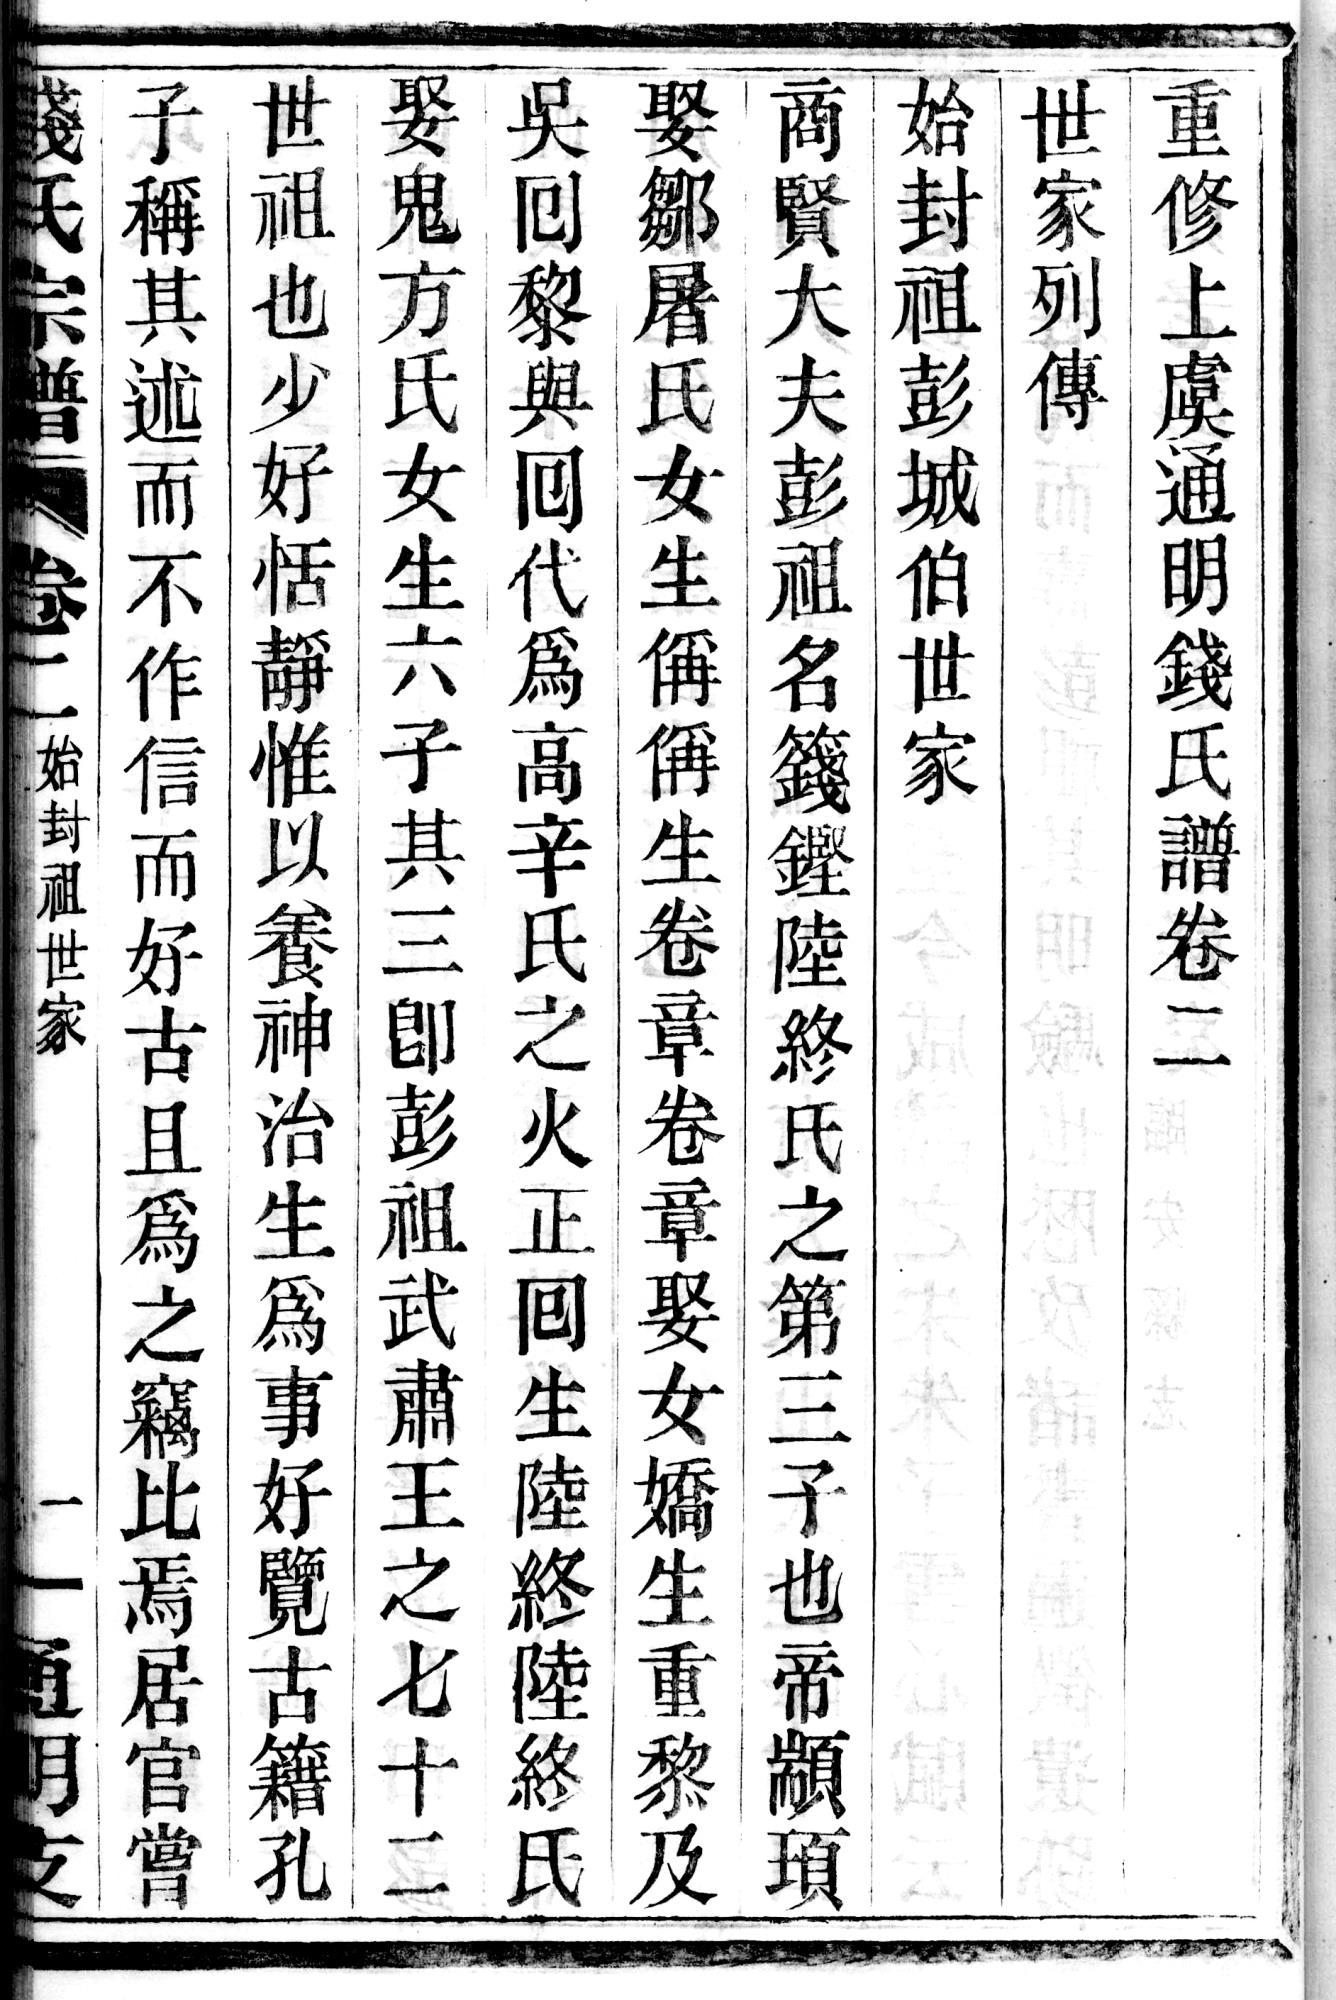 重修上虞通明錢氏譜卷二
世家列傳
始封祖彭城伯世家
商賢大夫彭祖名籛鏗陸終氏之第三子也帝顓頊
娶鄒屠氏女生偁偁生卷章卷章娶女嬌生重黎及
吳回黎與回代爲高辛氏之火正回生陸終陸終氏
娶鬼方氏女生六子其三卽彭祖武肅王之七十二
世祖也少好恬靜惟以養神治生爲事好覽古籍孔
子稱其述而不作信而好古且爲之竊比焉居官嘗
錢氏宗譜 卷二 始封祖世家 一 通明支